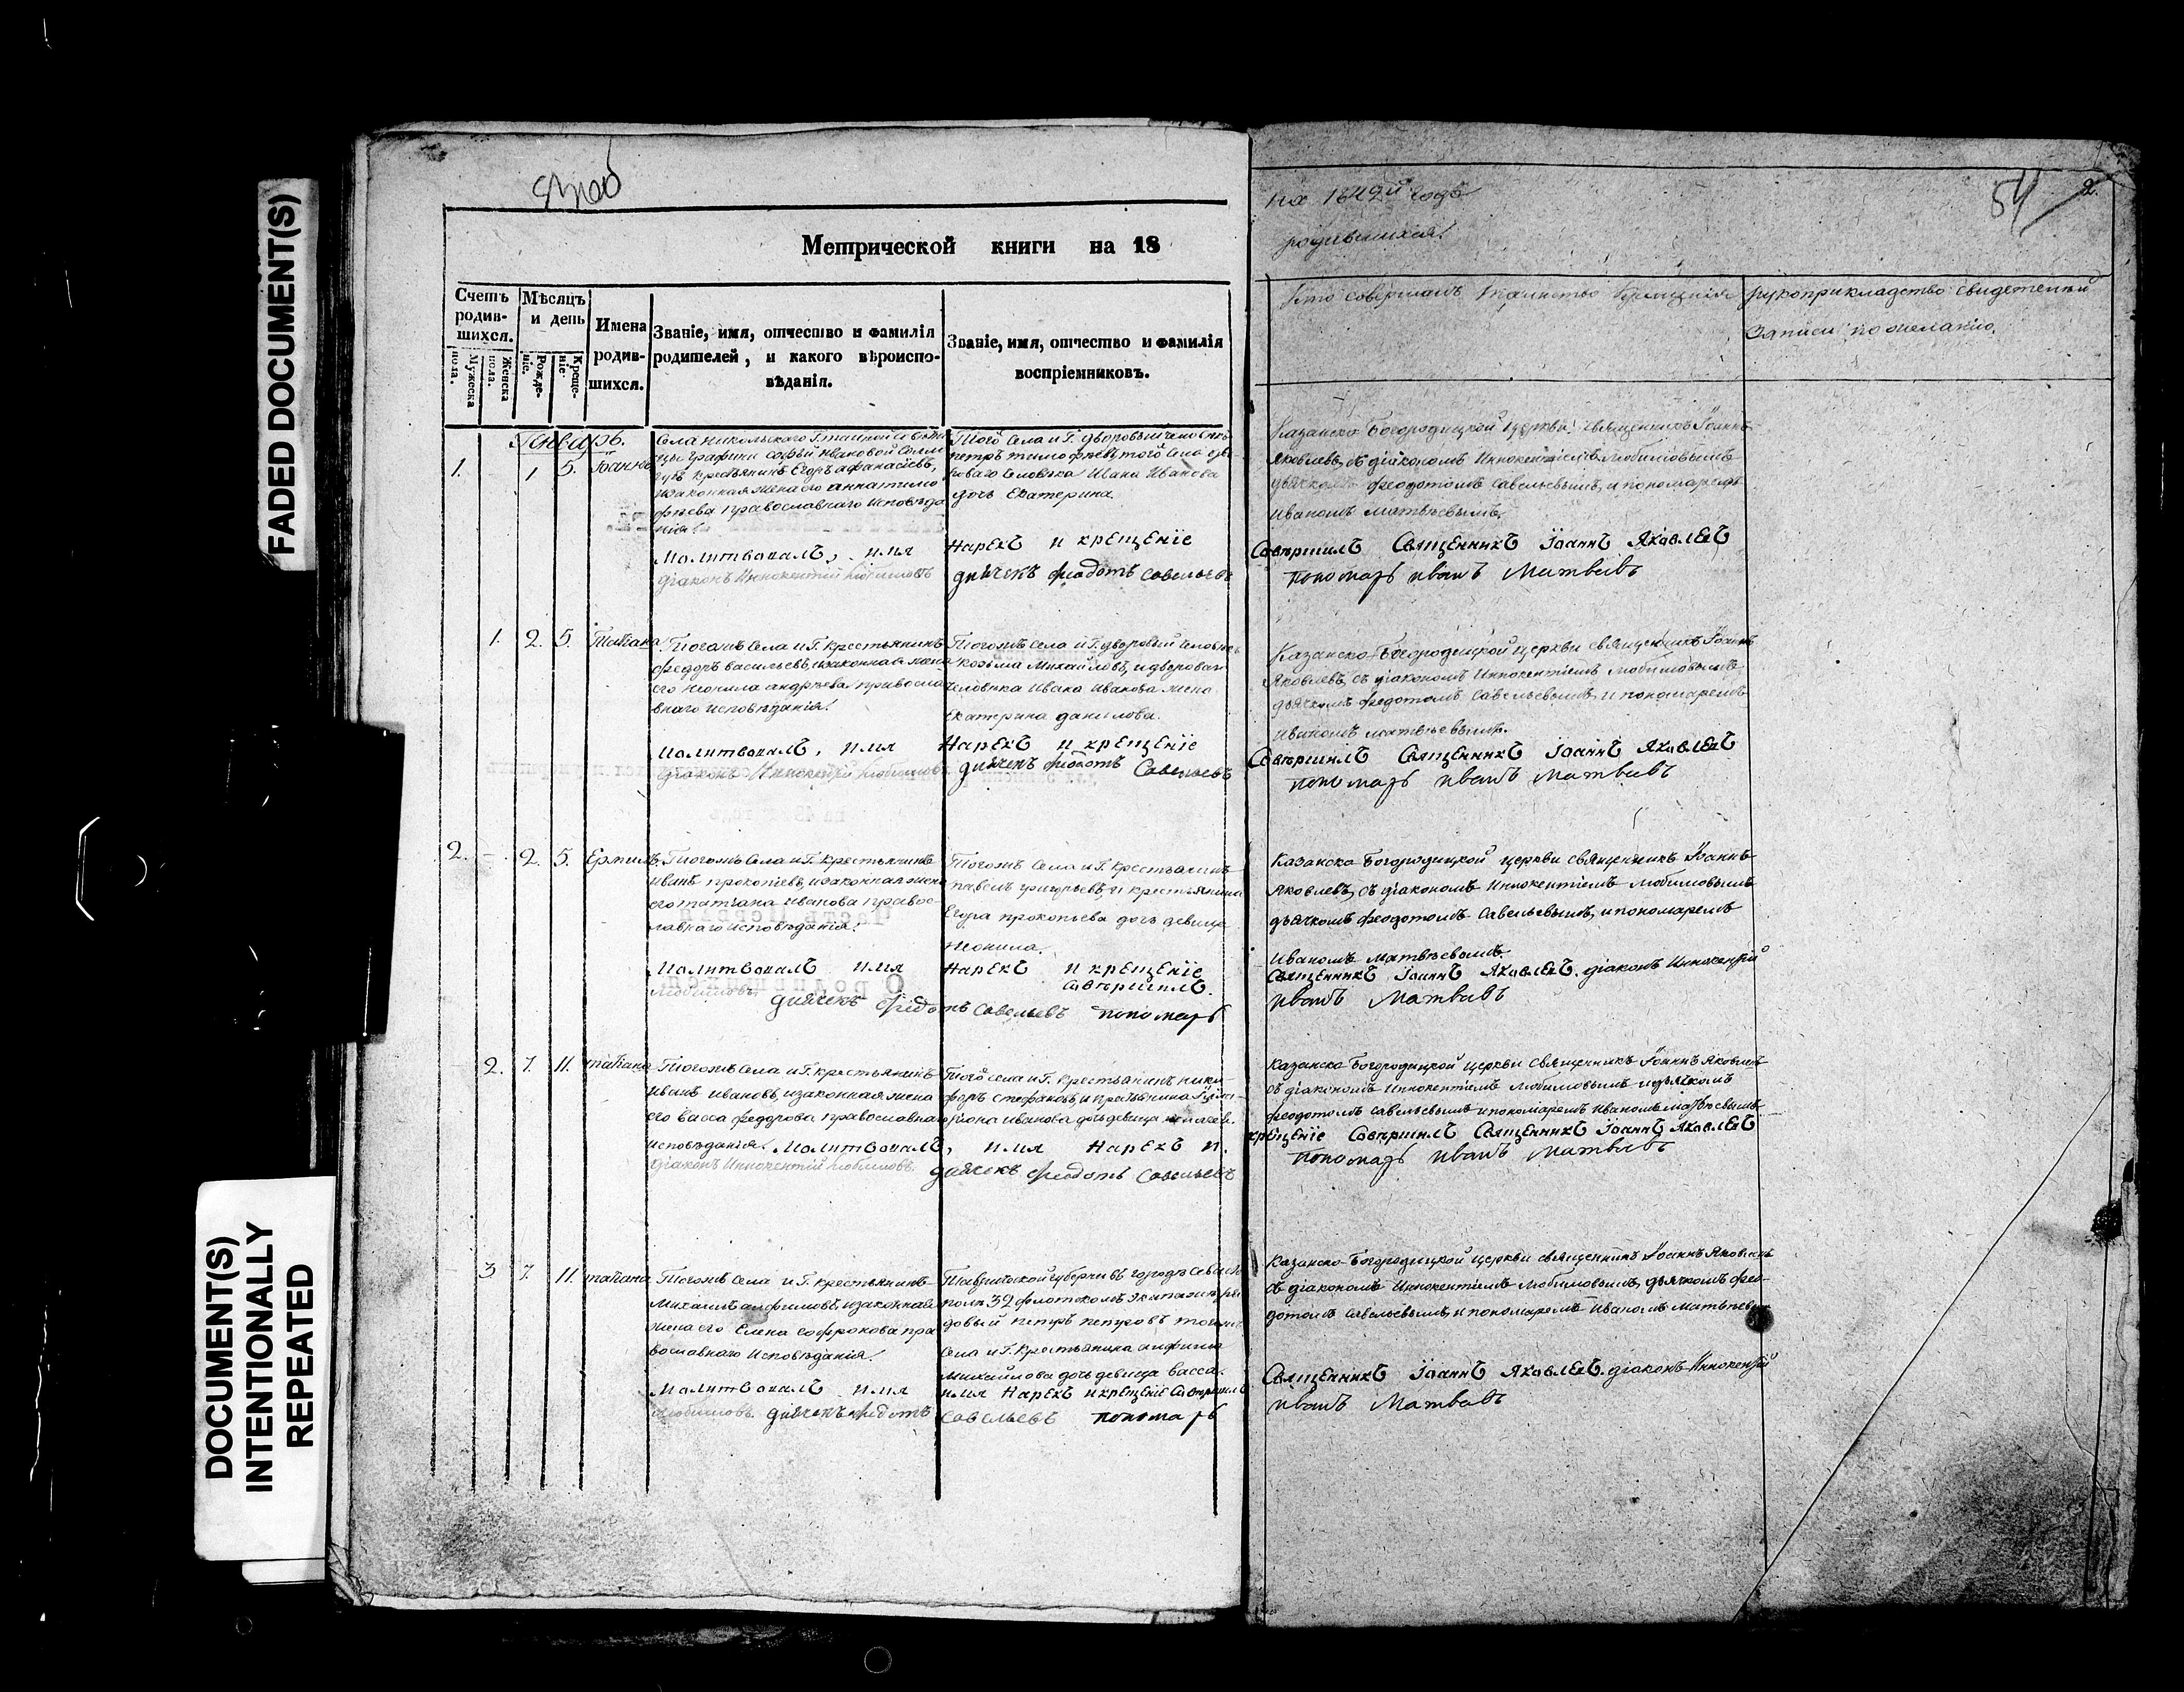 FADED DOCUMENT(S)
DOCUMENT(S)
INTENTIONALLY
REPEATED
Метрической книги на 18
на 1842й годъ
родившихся.
54
2.
Счетъ
родив-
шихся.
Мужеска
пола.
Женска
пола.
Мѣсяцъ
и день
Рожде-
ніе.
Креще-
ніе.
Имена
родив-
шихся.
Званіе, имя, отчество и фамилія
родителей, и какого вѣроиспо-
вѣданія.
Званіе, имя, отчество и фамилія
воспріемниковъ.
Кто совершалъ таинство крещенія
рукоприкладство свидетелей
записи по желанію.
Генварь.
1.
1
5.
Іоаннъ
Села Никольскаго Г. тайной совѣтни
цы графини Софьи Ивановой Солло
губъ крестьянинъ Егоръ Афанасіевъ,
и законная жена его Анна тимо
фѣева православнаго исповѣда
нія.
Того села и Г. дворовый человѣкъ
петръ тимофѣевъ, того села дво
роваго человѣка Ивана Иванова
дочь Екатерина.
Казанско Богородицкой церкви священникъ Іоаннъ
Яковлевъ, съ діакономъ Иннокентіемъ Любимовымъ
дьячкомъ феодотомъ Савельевымъ, и пономаремъ
Иваномъ матвѣевымъ.
Молитвовалъ, имя
Нарекъ и крещеніе
Совершилъ Священникъ Іоаннъ Яковлевъ
діаконъ Иннокентій Любимовъ
дьячекъ федотъ Савельевъ
пономарь иванъ Матвевъ
1.
2.
5.
Татіана
Тогожъ Села и Г. крестьянинъ
федоръ васильевъ, и законная жена
его неонила андрѣева правосла
внаго исповѣданія.
Тогожъ Села и Г. дворовый человѣкъ
козьма Михайловъ, и двороваго
человѣка Ивана Иванова жена
Екатерина данилова.
Казанско-Богородицкой церкви священникъ Іоаннъ
Яковлевъ, съ діакономъ Иннокентіемъ Любимовымъ
дьячкомъ федотомъ Савельевымъ, и пономаремъ
Иваномъ матвѣевымъ.
Молитвовалъ, имя
Нарекъ и крещеніе
Совершилъ Священникъ Іоаннъ Яковлевъ
діаконъ Иннокентій Любимовъ
дьячекъ федотъ Савельевъ
пономарь иванъ Матвевъ
2.
2.
5.
Ермилъ.
Тогожъ Села и Г. крестьянинъ
Иванъ прокопіевъ, и законная жена
его татіана Иванова правос-
лавнаго исповѣданія.
Тогожъ Села и Г. крестьянинъ
павелъ григорьевъ, и крестьянина
Егора прокопьева дочь девица
неонила.
Казанско Богородицкой церкви священникъ Іоаннъ
Яковлевъ, съ діакономъ Иннокентіемъ Любимовымъ
дьячкомъ феодотомъ Савельевымъ, и пономаремъ
Иваномъ Матвѣевымъ.
Молитвовалъ имя
Нарекъ и крещеніе
Совершилъ.
Священникъ Іоаннъ Яковлевъ. діаконъ Иннокентій
Любимовъ дьячекъ федотъ Савельевъ пономарь
иванъ Матвевъ
2.
7.
11.
татіана
Тогожъ Села и Г. крестьянинъ
Иванъ Ивановъ, и законная жена
его Васса федорова православнаго
исповѣданія.
Казанско Богородицкой церкви Священникъ Іоаннъ Яковлевъ
съ діакономъ Иннокентіемъ Любимовымъ и дьячкомъ
феодотомъ Савельевымъ и пономаремъ Иваномъ Матвѣевымъ
Молитвовалъ, имя Нарекъ и
крещеніе Совершилъ Священникъ Іоаннъ Яковлевъ
діаконъ Иннокентій Любимовъ
дьячекъ федотъ Савельевъ
пономарь иванъ Матвевъ
3
7.
11.
татіана
Тогожъ Села и Г. крестьянинъ
Михаилъ анфимовъ, и законная
жена его Елена Софронова пра
вославнаго исповѣданія.
Таврической губерніи въ городѣ Севасто
полѣ 32 флотскомъ Экипажѣ ря
довый петръ петровъ тогожъ
Села и Г. крестьянина анфима
Михайлова дочь девица васса.
Казанско-Богородицкой церкви священникъ Іоаннъ Яковлевъ
съ діакономъ Иннокентіемъ Любимовымъ, дьячкомъ фео-
дотомъ Савельевымъ, и пономаремъ Иваномъ Матвѣевы
Молитвовалъ имя
имя Нарекъ и крещеніе Совершилъ
Священникъ Іоаннъ Яковлевъ. діаконъ Иннокентій
Любимовъ. дьячекъ федотъ
Савельевъ пономарь
иванъ Матвевъ